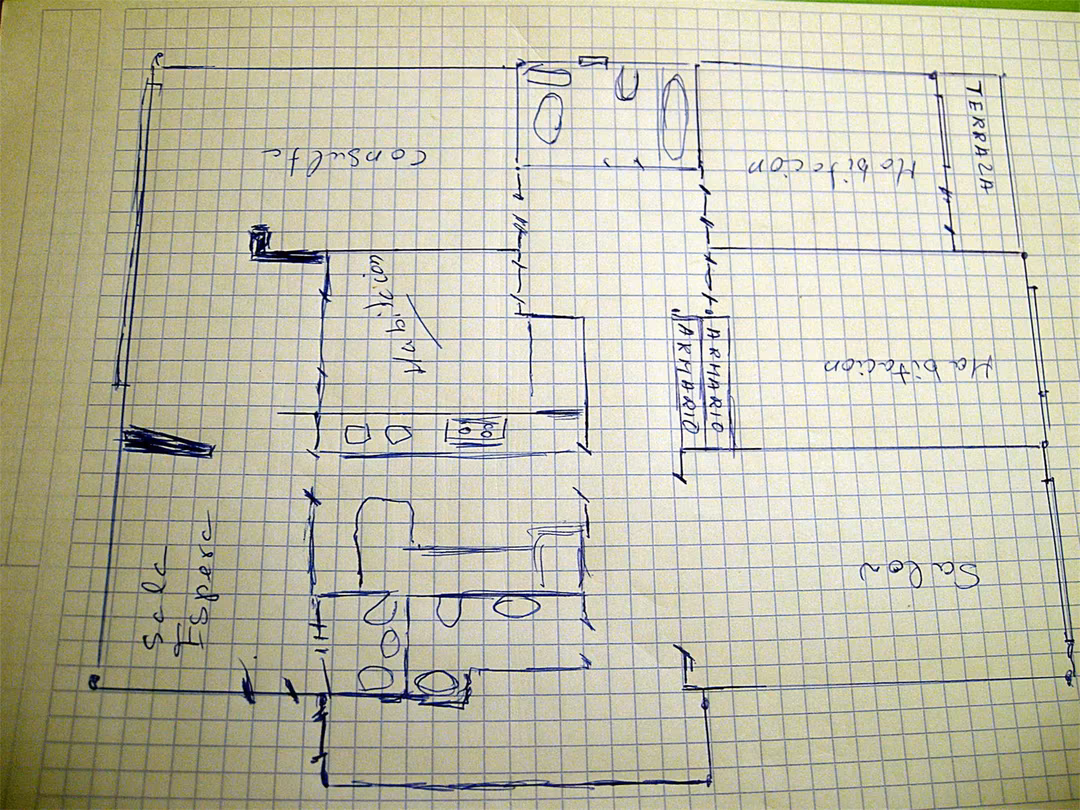 TERRAZA
Consulta
Habitacion
Habitacion
Habitacion
ARMARIO
ARMARIO
Salon
Sala
Espera